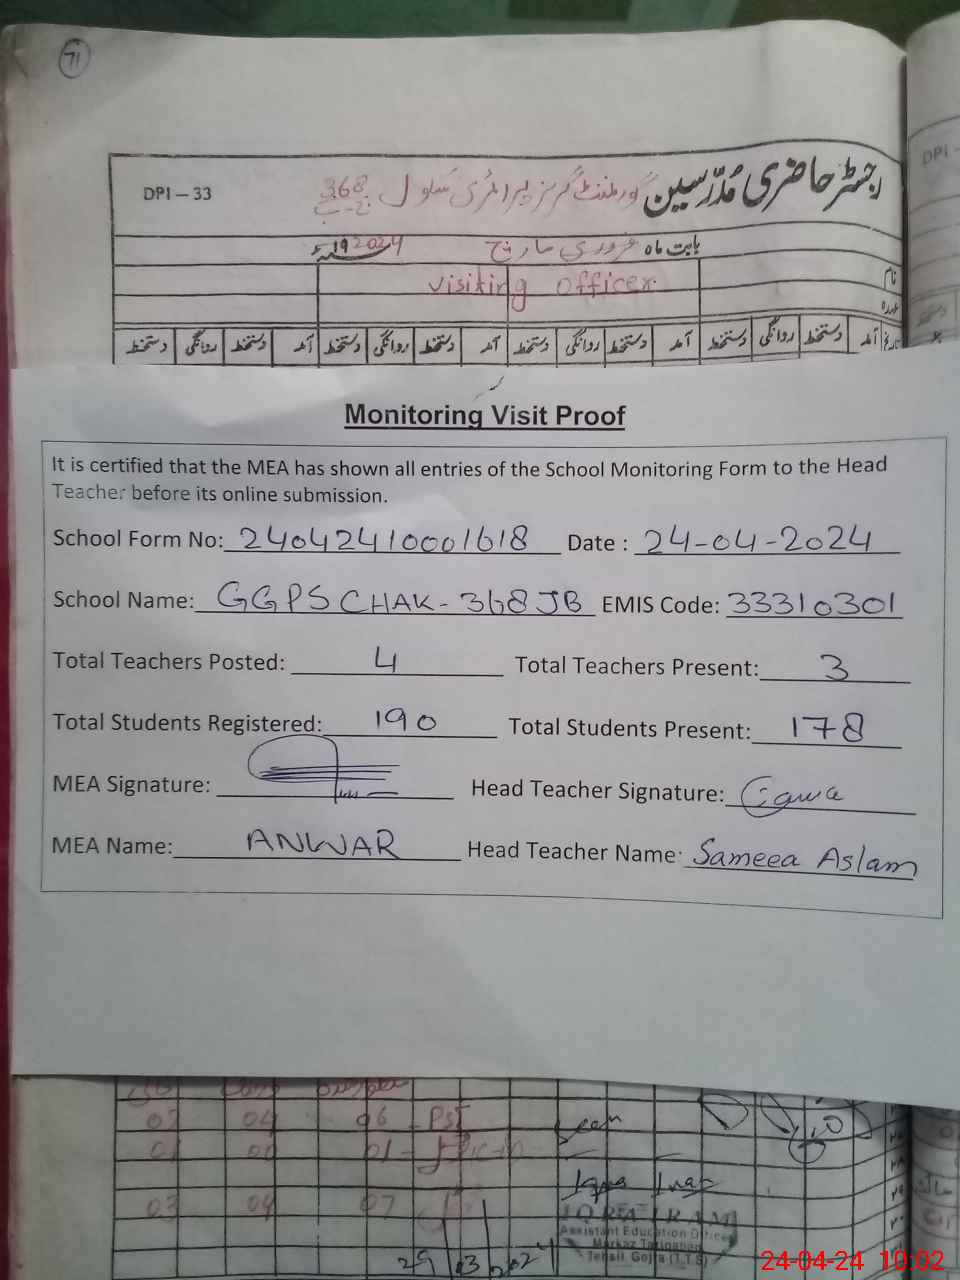 71
DPI – 33
رجسٹر حاضری مُدرّسین گورنمنٹ گرلز پرائمری سکول 368 ج-ب
بابت ماہ فروری مارچ 192024ء
نام
visiting officer
عہدہ
تاریخ آمد دستخط روانگی دستخط آمد دستخط روانگی دستخط آمد دستخط روانگی دستخط آمد دستخط روانگی دستخط
Monitoring Visit Proof
It is certified that the MEA has shown all entries of the School Monitoring Form to the Head
Teacher before its online submission.
School Form No: 24042410001618 Date : 24-04-2024
School Name: GGPS CHAK-368JB EMIS Code: 33310301
Total Teachers Posted: 4 Total Teachers Present: 3
Total Students Registered: 190 Total Students Present: 178
MEA Signature: Head Teacher Signature:
MEA Name: ANWAR Head Teacher Name: Sameea Aslam
03 04 06 PST
01 00 01
Iqra Iram
03 04 07
IQRA IRAM
Assistant Education Officer
Markaz
Tehsil Gojra (T.T.S)
29 03 2024
24-04-24 10:02